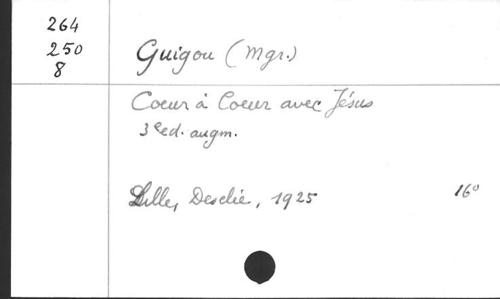 264
250
8
Guigou (Mgr.)
Coeur à Coeur avec Jésus
3e ed. augm.
Lille, Desclée, 1925 16°